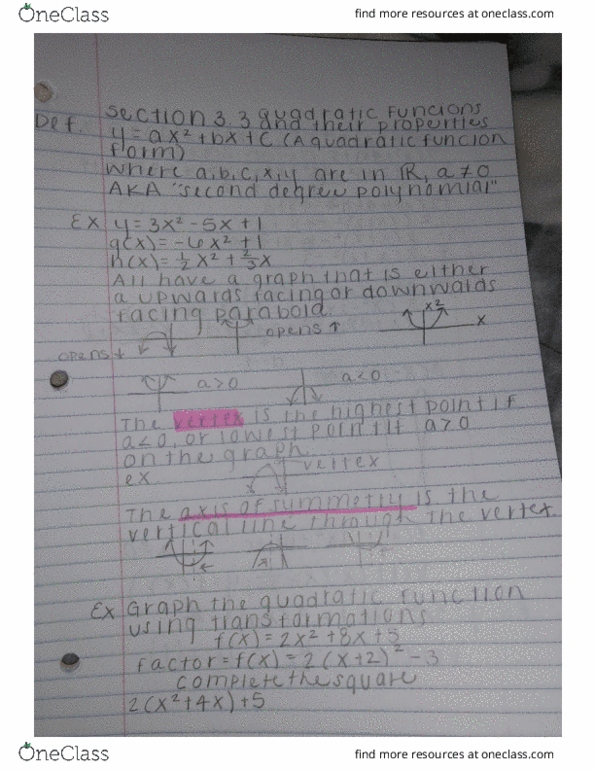 OneClass
find more resources at oneclass.com
Section 3.3 Quadratic Funcions
and their properties
Def. y = ax² + bx + c (A quadratic funcion
form)
where a, b, c, x, y are in ℝ, a ≠ 0
AKA "second degree polynomial"
Ex y = 3x² - 5x + 1
g(x) = -6x² + 1
h(x) = ½x² + ⅔x
All have a graph that is either
a upwards facing or downwards
facing parabola.
x²
opens ↑
x
opens ↓
a > 0
a < 0
The vertex is the highest point if
a < 0, or lowest point if a > 0
on the graph.
ex
vertex
The axis of symmetry is the
vertical line through the vertex.
Ex Graph the quadratic function
using transformations
f(x) = 2x² + 8x + 5
factor = f(x) = 2(x+2)² - 3
complete the square
2(x² + 4x) + 5
OneClass
find more resources at oneclass.com